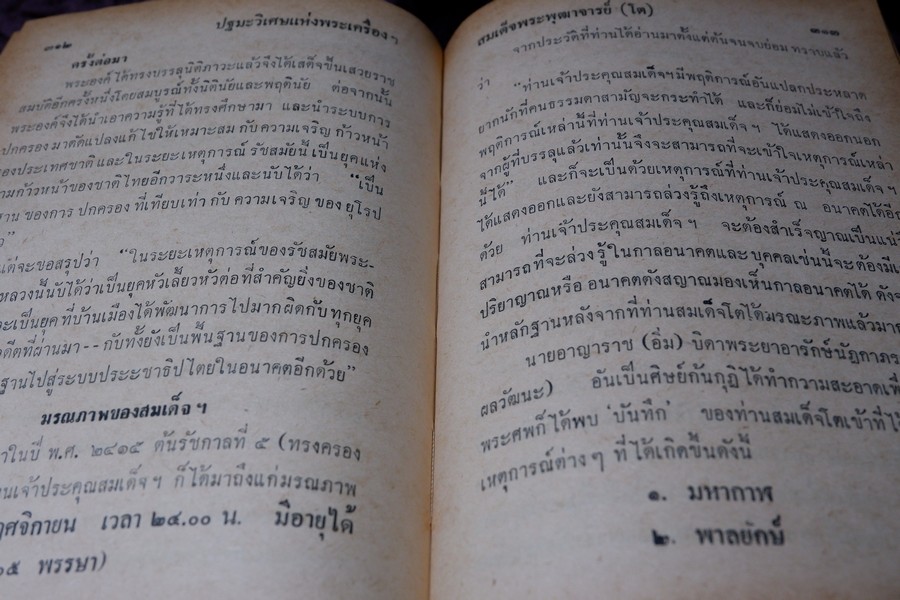 ๓๑๒
ปฐมะวิเศษแห่งพระเครื่อง ฯ
ครั้งต่อมา
พระองค์ ได้ทรงบรรลุนิติภาวะแล้วจึงได้เสด็จขึ้นเสวยราช
สมบัติอีกครั้งหนึ่งโดยสมบูรณ์ทั้งนิตินัยและพฤตินัย ต่อจากนั้น
พระองค์จึงได้นำเอาความรู้ที่ได้ทรงศึกษามา และนำระบบการ
ปกครอง มาดัดแปลงแก้ไขให้เหมาะสม กับ ความเจริญ ก้าวหน้า
ของประเทศชาติ และในระยะเหตุการณ์ รัชสมัยนี้ เป็นยุคแห่ง
ความก้าวหน้าของชาติ ไทยอีกวาระหนึ่งและนับได้ว่า “เป็น
ฐาน ของการ ปกครอง ที่เทียบเท่า กับ ความเจริญ ของ ยุโรป
”
แต่จะขอสรุปว่า “ในระยะเหตุการณ์ของรัชสมัยพระ-
หลวงนั้นนับได้ว่าเป็นยุคหัวเลี้ยวหัวต่อที่สำคัญยิ่งของชาติ
จะเป็นยุค ที่บ้านเมืองได้พัฒนาการ ไปมากผิดกับ ทุกยุค
อดีตที่ผ่านมา -- กับทั้งยังเป็นพื้นฐานของการปกครอง
ฐานไปสู่ระบบประชะชาธิปไตยในอนาคตอีกด้วย”
มรณภาพของสมเด็จ ฯ
ในปี พ.ศ. ๒๔๑๕ ต้นรัชกาลที่ ๕ (ทรงครอง
ท่านเจ้าประคุณสมเด็จ ฯ ก็ได้มาถึงแก่มรณภาพ
พฤศจิกายน เวลา ๒๔.๐๐ น. มีอายุได้
๖๕ พรรษา)
สมเด็จพระพุฒาจารย์ (โต)
๓๑๓
จากประวัติที่ท่านได้อ่านมาตั้งแต่ต้นจนจบย่อม ทราบแล้ว
ว่า “ท่านเจ้าประคุณสมเด็จฯ มีพฤติการณ์อันแปลกประหลาด
ยากนักที่คนธรรมดาสามัญจะกระทำได้ และก็ย่อมไม่เข้าใจถึง
พฤติการณ์เหล่านี้ที่ท่านเจ้าประคุณสมเด็จ ฯ ได้แสดงออกนอก
จากผู้ที่บรรลุแล้วเท่านั้นจึงจะสามารถที่จะเข้าใจเหตุการณ์เหล่า
นี้ได้” และก็จะเป็นด้วยเหตุการณ์ที่ท่านเจ้าประคุณสมเด็จ ฯ
ได้แสดงออกและยังสามารถล่วงรู้ถึงเหตุการณ์ ณ อนาคตได้อีก
ด้วย ท่านเจ้าประคุณสมเด็จ ฯ จะต้องสำเร็จญาณเป็นแน่
สามารถที่จะล่วง รู้ ในกาลอนาคตและ บุคคลเช่นนี้จะต้องมี
ปริยาญาณหรือ อนาคตตังสญาณมองเห็นกาลอนาคตได้ ดัง
นำหลักฐานหลังจากที่ท่านสมเด็จโตได้มรณะภาพแล้วมา
นายอาญาราช (อิ่ม) บิดาพระยาอารักษ์นัฏกาภร
ผลวัฒนะ) อันเป็นศิษย์ก้นกุฏิได้ทำความสะอาด
พระศพก็ได้พบ ‘บันทึก’ ของท่านสมเด็จโตเข้าที่
เหตุการณ์ต่างๆ ที่ได้เกิดขึ้นดังนี้
๑. มหากาฬ
๒. พาลยักษ์